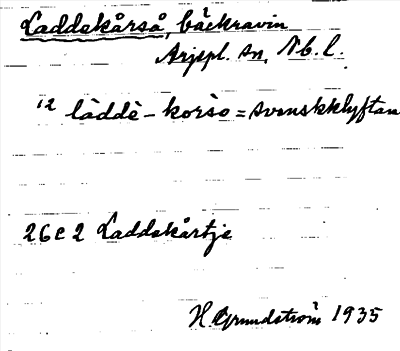 Laddekårså, bäckravin
Arjepl. sn, Nb. l.
12 làddè - korso = svenskklyftan
26 e 2 Laddekårtje
H. Grundström 1935